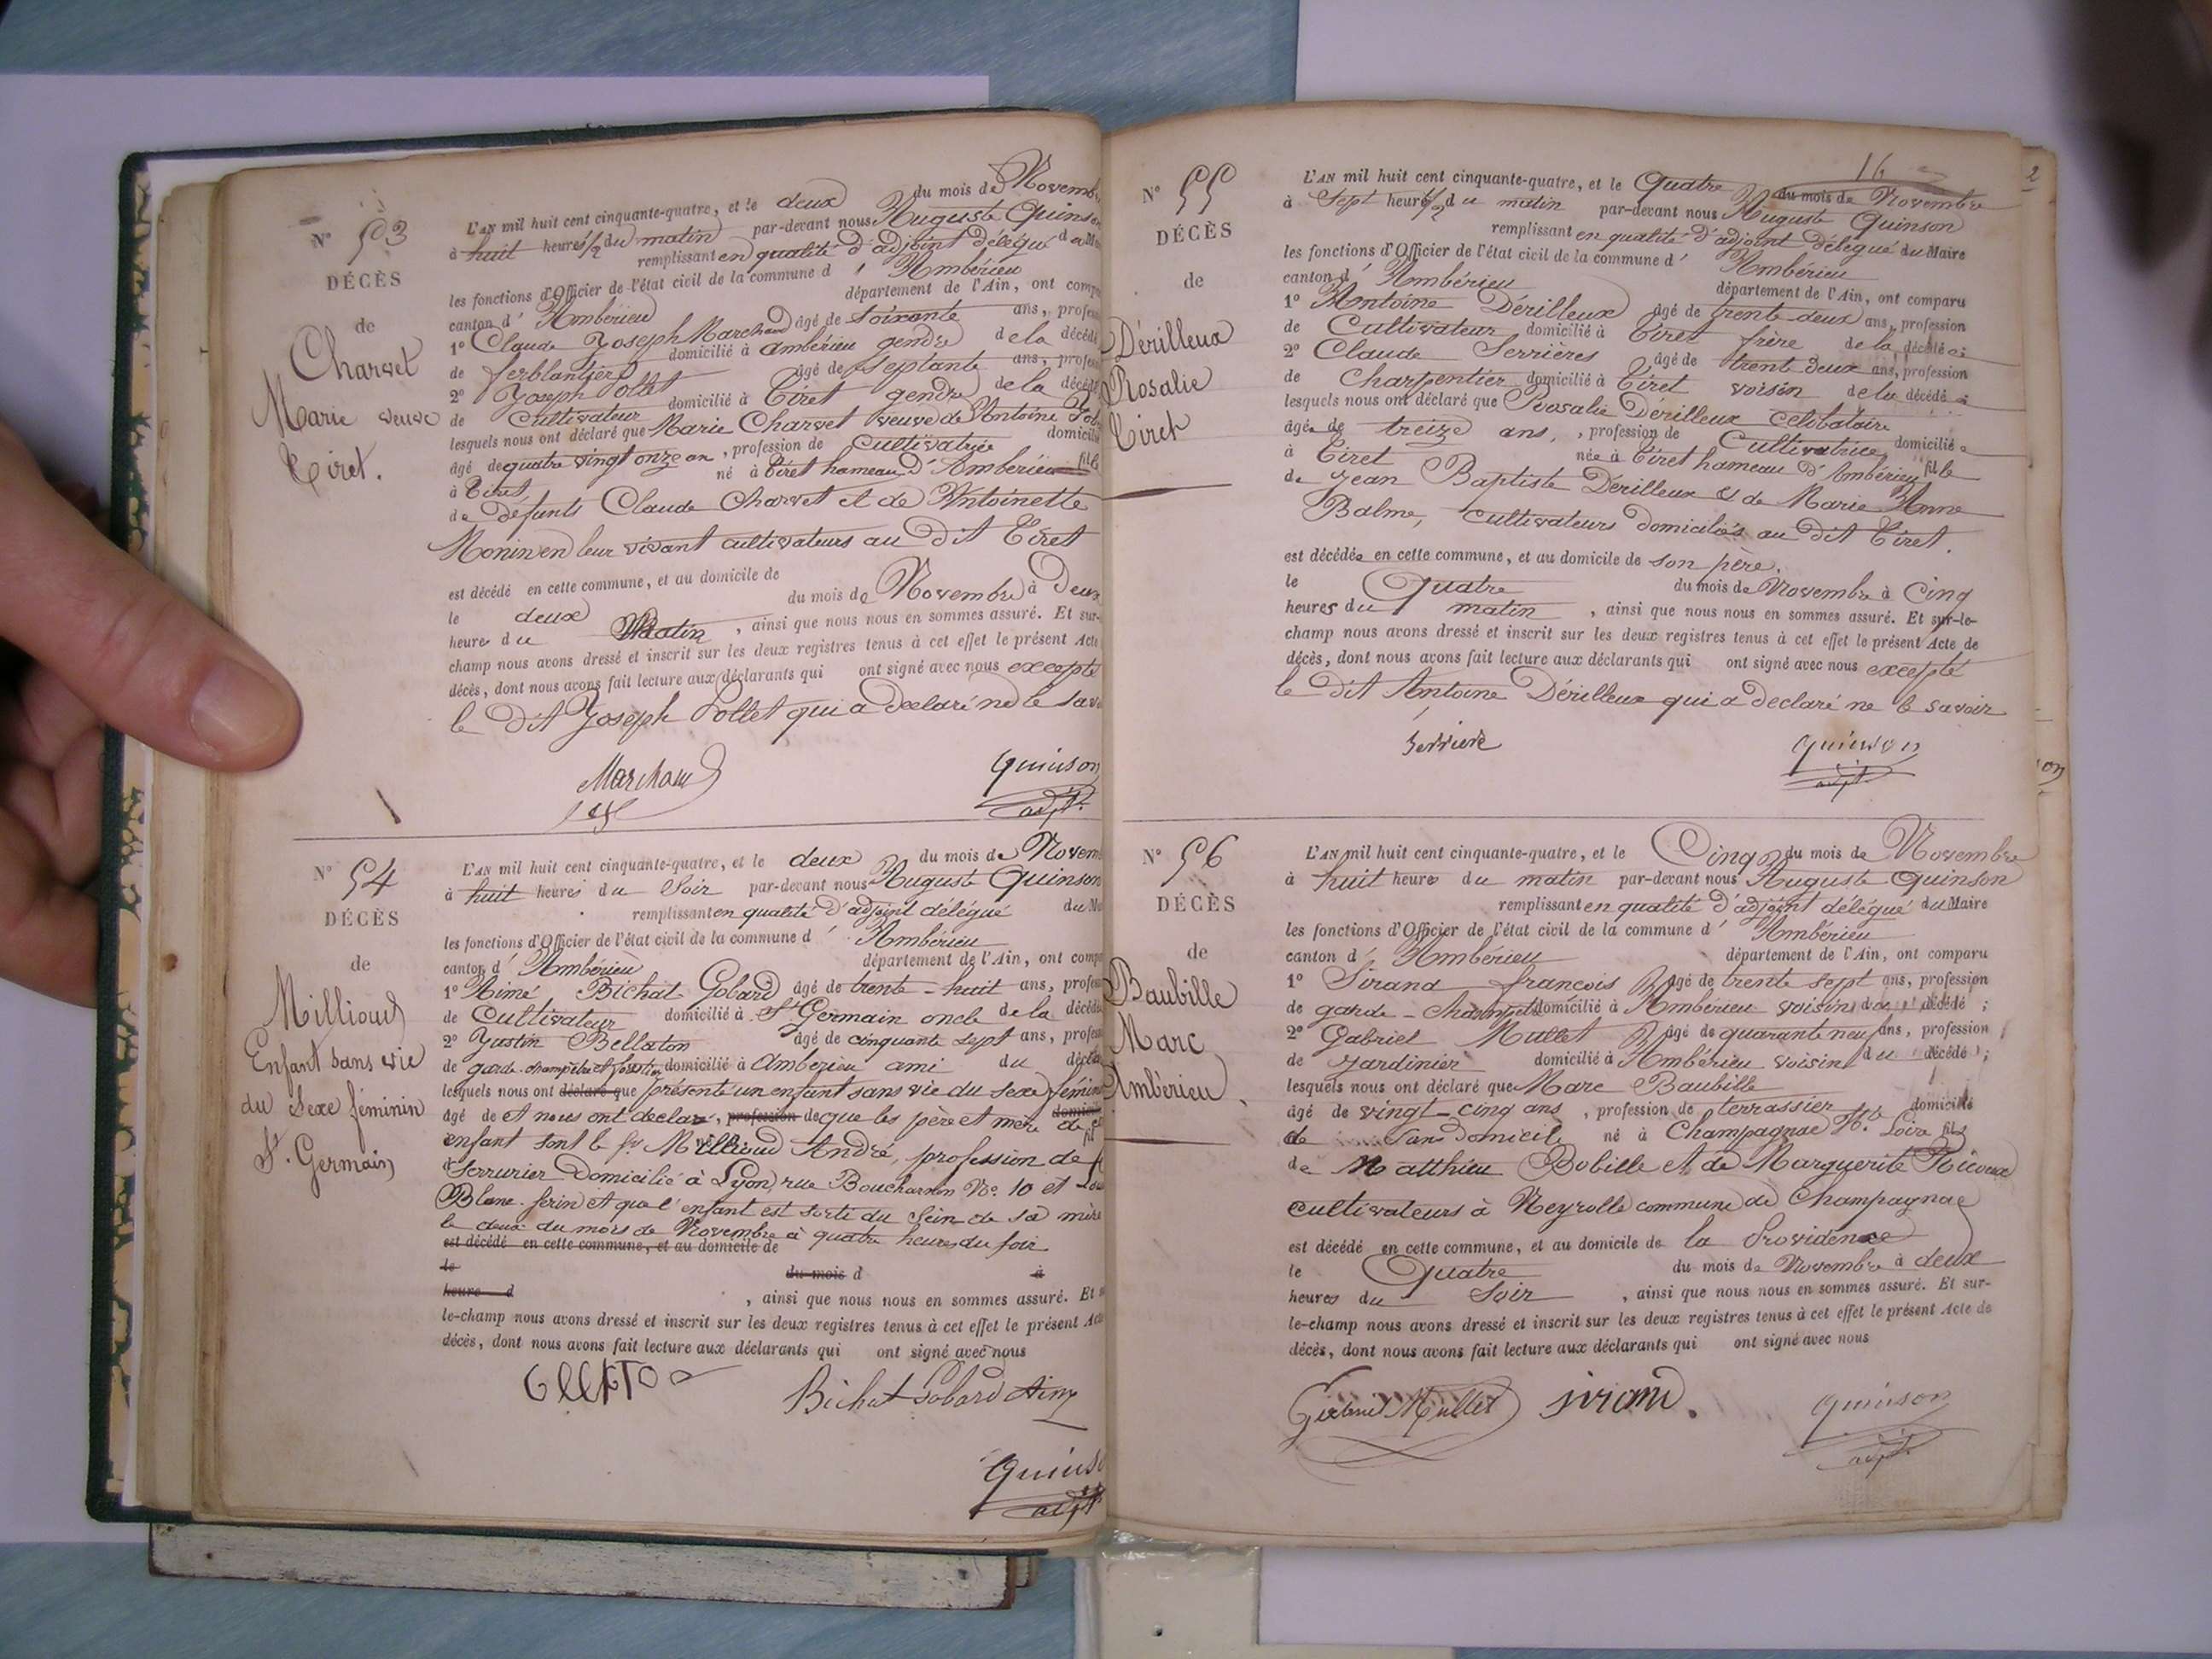 N° 53
DÉCÈS
de
Charvet
Marie veuve
Tiret.
L'AN mil huit cent cinquante-quatre, et le deux du mois de Novemb
à huit heures 1/2 du matin par-devant nous Auguste Quinson
remplissant en qualité d'adjoint délégué du M
les fonctions d'Officier de l'état civil de la commune d' Ambérieu
canton d' Ambérieu département de l'Ain, ont comp
1° Claude Joseph Marchand âgé de soixante ans, profes
de ferblantier domicilié à ambérieu gendre de la décédé
2° Joseph Pollet âgé de septante ans, profes
de Cultivateur domicilié à Tiret gendre de la décédé
lesquels nous ont déclaré que Marie Charvet veuve de Antoine
âgé de quatre vingt onze an, profession de Cultivatrice domicilié
à Tiret né à Tiret hameau d'Ambérieu fille
de défunts Claude Charvet et de Antoinette
Monin en leur vivant cultivateurs au dit Tiret
est décédé en cette commune, et au domicile de
le deux du mois de Novembre à Deux
heures du Matin, ainsi que nous nous en sommes assuré. Et sur-
champ nous avons dressé et inscrit sur les deux registres tenus à cet effet le présent Acte
décès, dont nous avons fait lecture aux déclarants qui ont signé avec nous excepté
le dit Joseph Pollet qui a declaré ne le sav
Marchand
Quinson
adjt.
N° 54
DÉCÈS
de
Millioud
Enfant sans vie
du Sexe féminin
St. Germain
L'AN mil huit cent cinquante-quatre, et le deux du mois de Novem
à huit heures du Soir par-devant nous Auguste Quinson
remplissant en qualité d'adjoint délégué du M
les fonctions d'Officier de l'état civil de la commune d' Ambérieu
canton d' Ambérieu département de l'Ain, ont comp
1° Aimé Bichat Gobard âgé de trente-huit ans, profes
de Cultivateur domicilié à St Germain oncle de la décédé
2° Justin Bellaton âgé de cinquante sept ans, profes
de garde-champêtre et forestier domicilié à Ambérieu ami du décla
lesquels nous ont déclaré que présenté un enfant sans vie du sexe fémin
âgé de et nous ont declaré, profession de que les père et mère de domicil
enfant sont le sr Millioud André, profession de
serrurier Domicilié à Lyon, rue Boucharnon No. 10 et
Blanc-ferin et que l'enfant est sorti du sein de sa mère
le deux du mois de Novembre à quatre heures du soir
est décédé en cette commune, et au domicile de
le du mois d à
heure d , ainsi que nous nous en sommes assuré. Et
le-champ nous avons dressé et inscrit sur les deux registres tenus à cet effet le présent Acte
décès, dont nous avons fait lecture aux déclarants qui ont signé avec nous
Bichat Gobard Aimé
Quinso
adjt
16
N° 55
DÉCÈS
de
Dérilleux
Rosalie
Tiret
L'AN mil huit cent cinquante-quatre, et le Quatre du mois de Novembre
à Sept heures 1/2 du matin par-devant nous Auguste Quinson
remplissant en qualité d'adjoint délégué du Maire
les fonctions d'Officier de l'état civil de la commune d' Ambérieu
canton d' Ambérieu département de l'Ain, ont comparu
1° Antoine Dérilleux âgé de trente-deux ans, profession
de Cultivateur domicilié à Tiret frère de la décédée;
2° Claude Serrières âgé de trente deux ans, profession
de Charpentier domicilié à Tiret voisin de la décédée
lesquels nous ont déclaré que Rosalie Dérilleux celibataire
âgée de treize ans, profession de Cultivatrice domiciliée
à Tiret née à Tiret hameau d'Ambérieu fille
de Jean Baptiste Dérilleux et de Marie Anne
Balme, cultivateurs domiciliés au dit Tiret.
est décédée en cette commune, et au domicile de son père.
le Quatre du mois de Novembre à Cinq
heures du matin, ainsi que nous nous en sommes assuré. Et sur-le-
champ nous avons dressé et inscrit sur les deux registres tenus à cet effet le présent Acte de
décès, dont nous avons fait lecture aux déclarants qui ont signé avec nous excepté
le dit Antoine Dérilleux qui a declaré ne le savoir
Serriere
Quinson
adjt.
N° 56
DÉCÈS
de
Baubille
Marc
Ambérieu
L'AN mil huit cent cinquante-quatre, et le Cinq du mois de Novembre
à huit heures du matin par-devant nous Auguste Quinson
remplissant en qualité d'adjoint délégué du Maire
les fonctions d'Officier de l'état civil de la commune d' Ambérieu
canton d' Ambérieu département de l'Ain, ont comparu
1° Sirand françois âgé de trente sept ans, profession
de garde-champêtre domicilié à Ambérieu voisin du décédé;
2° Gabriel Mullet âgé de quarante neuf ans, profession
de Jardinier domicilié à Ambérieu voisin du décédé;
lesquels nous ont déclaré que Marc Baubille
âgé de vingt-cinq ans, profession de terrassier domicilié
de sans domicile né à Champagnac Hte. Loire fils
de Matthieu Bobille et de Marguerite
cultivateurs à Neyrolle commune de Champagnac
est décédé en cette commune, et au domicile de la Providence
le Quatre du mois de Novembre à deux
heures du Soir, ainsi que nous nous en sommes assuré. Et sur-
le-champ nous avons dressé et inscrit sur les deux registres tenus à cet effet le présent Acte de
décès, dont nous avons fait lecture aux déclarants qui ont signé avec nous
Gabriel Mullet
sirand.
Quinson
adjt.